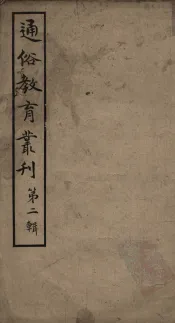 通俗教育叢刊
第二輯